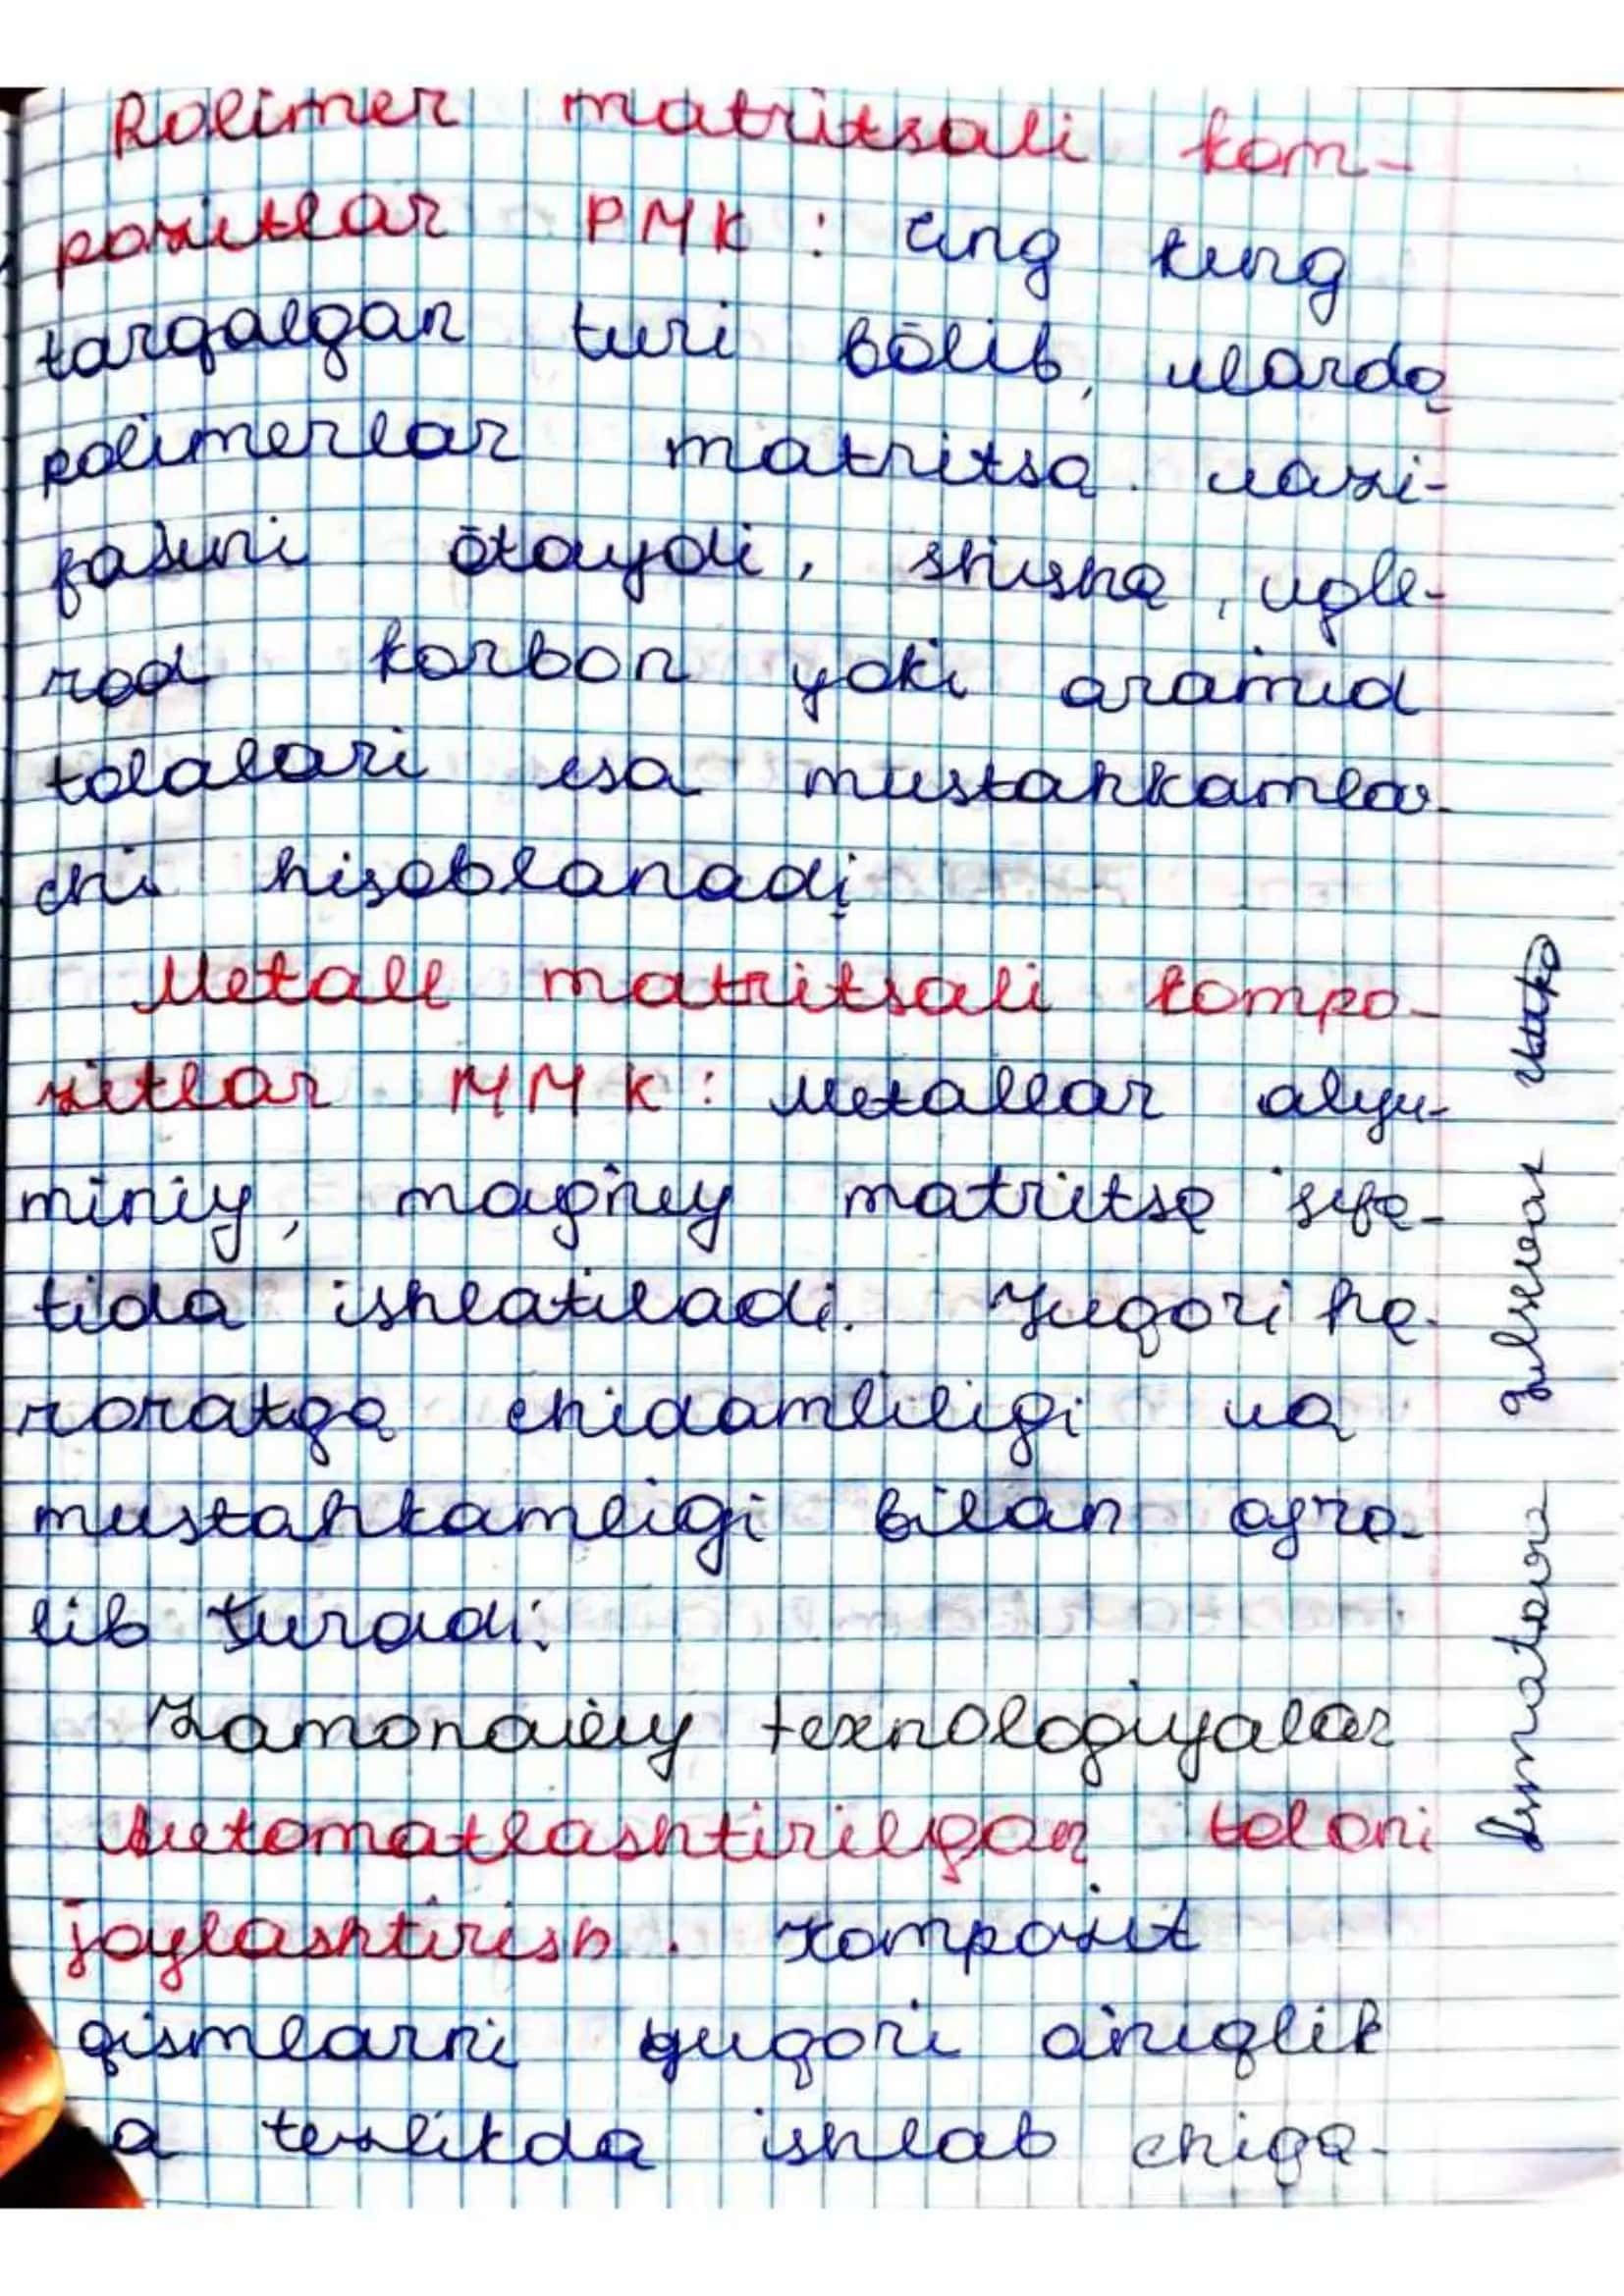 Polimer matritsali kom-
pozitlar PMK : Eng keng
tarqalgan turi bōlib, ularda
polimerlar matritsa vazi-
fasini ōtaydi, shisha, ugle-
rod karbon yoki aramid
tolalari esa mustahkamlov-
chi hisoblanadi
Metall matritsali kompo-
zitlar MMK : Metallar alyu-
miniy, magniy matritsa sifa-
tida ishlatiladi. Yuqori ha-
roratga chidamliligi va
mustahkamligi bilan ajra-
lib turadi.
Zamonaviy texnologiyalar
Avtomatlashtirilgan tolani
joylashtirish. Kompozit
qismlarni yuqori aniqlik
a tezlikda ishlab chiqa-
Ismatova Gulsevar